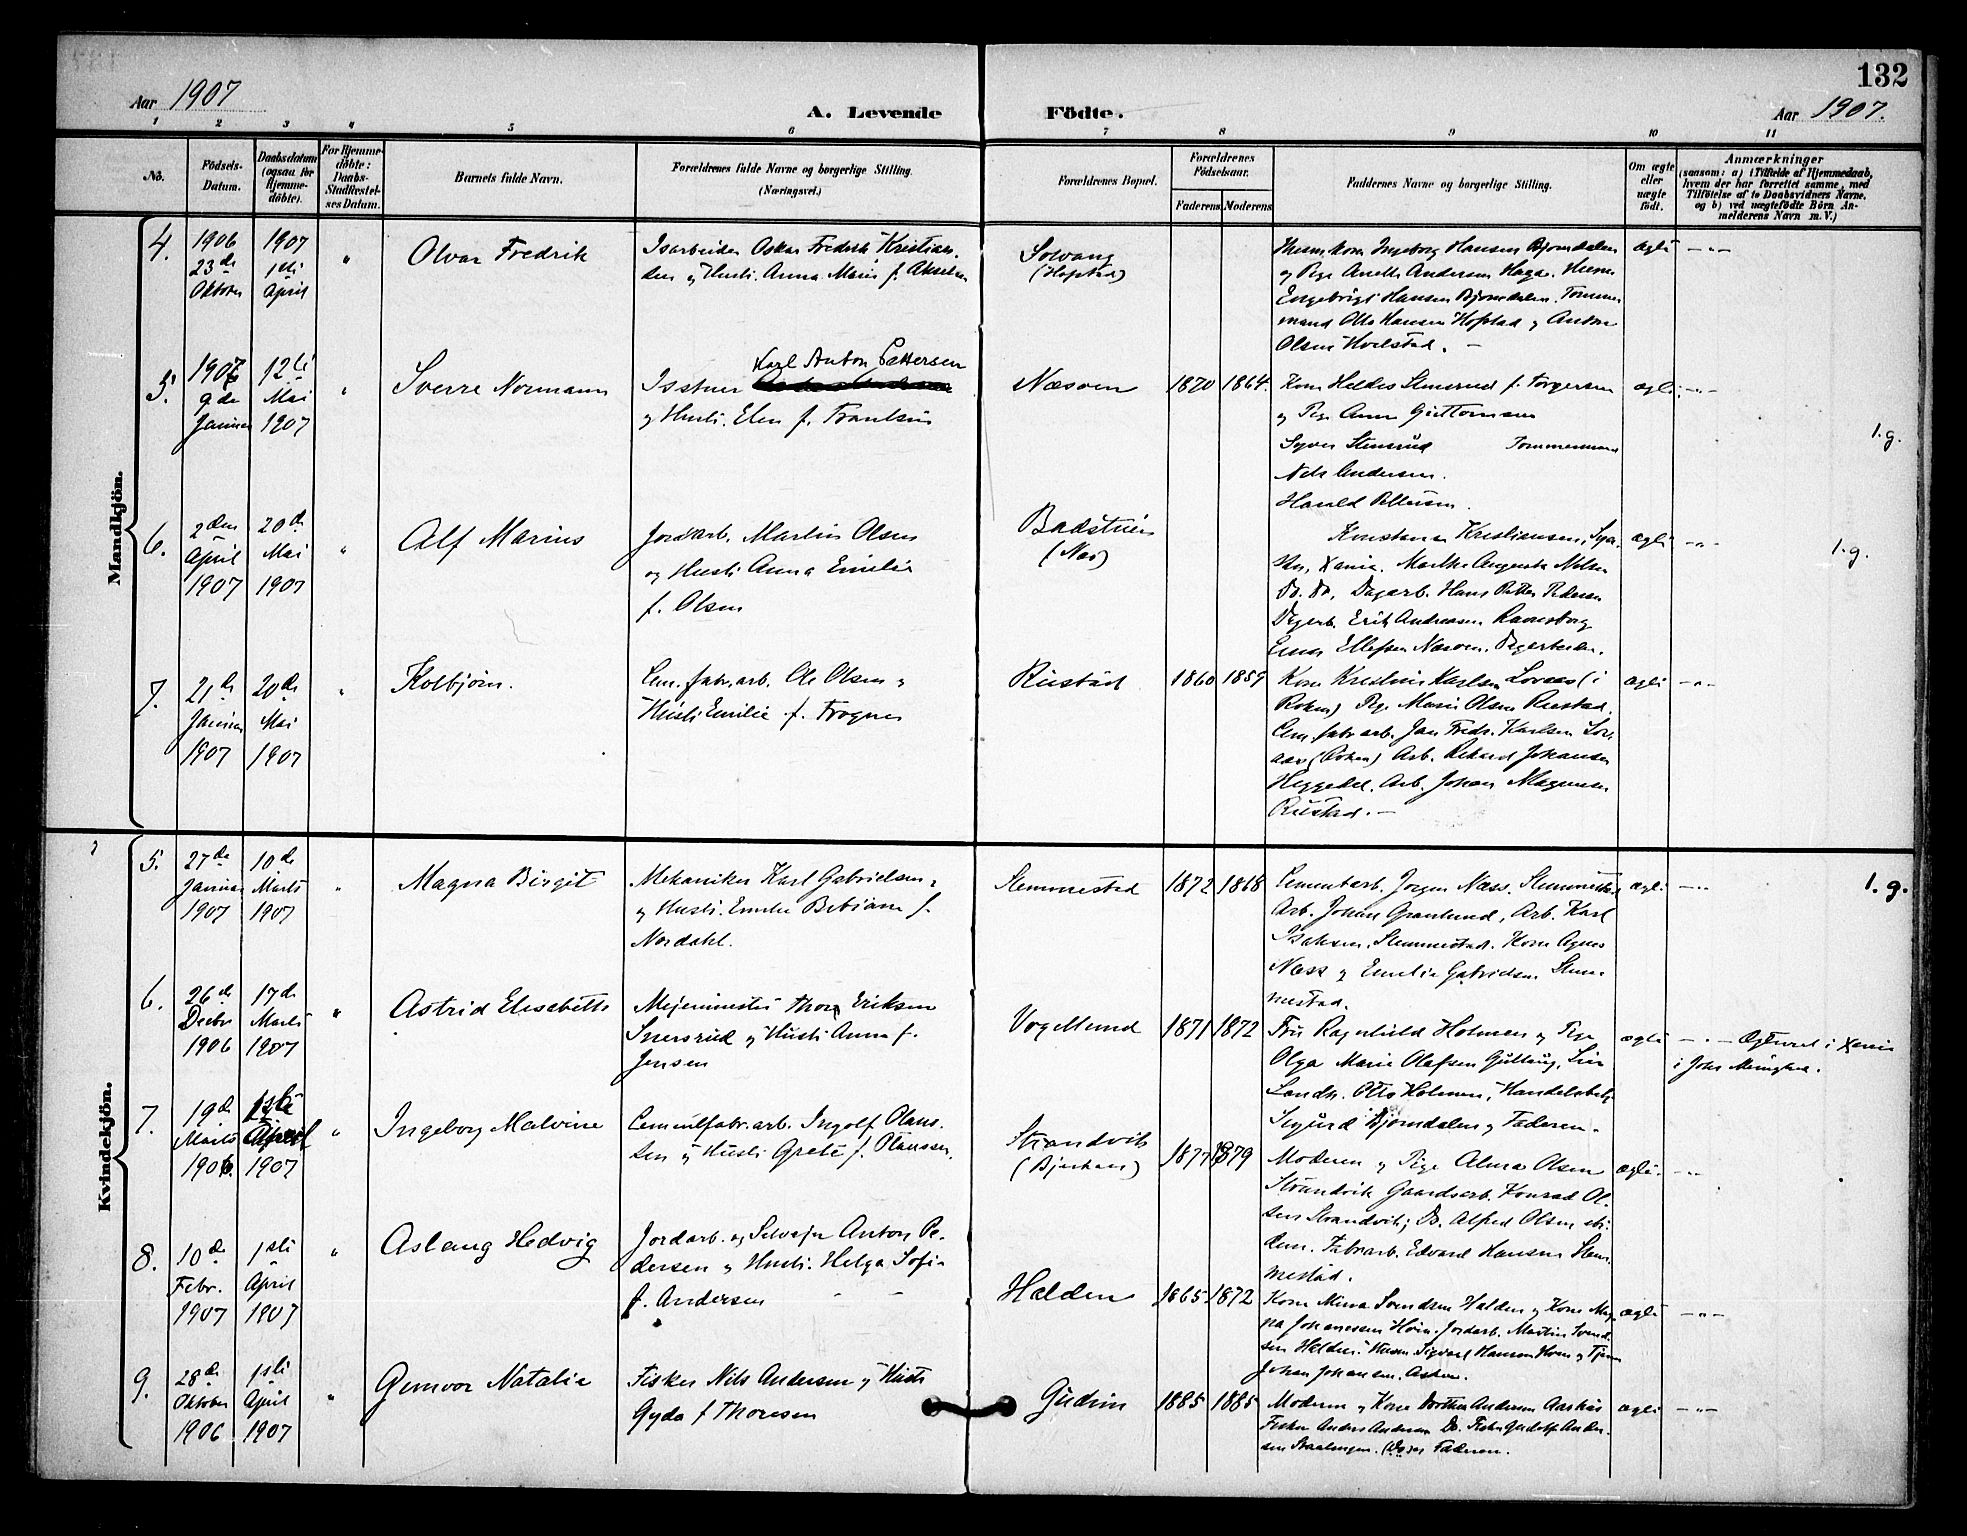 132
Aar 1907
A. Levende Födte.
Aar 1907.
1 2 3 4 5 6 7 8 9 10 11
No.
Födsels-
Datum.
Daabsdatum
(ogsaa for
Hjemme-
döbte).
For Hjemme-
döbte:
Daabs-
Stadfæstel-
ses Datum.
Barnets fulde Navn.
Forældrenes fulde Navne og borgerlige Stilling.
(Næringsvei.)
Forældrenes Bopæl.
Forældrenes
Födselsaar.
Faderens
Moderens
Faddernes Navne og borgerlige Stilling.
Om ægte
eller
uægte
födt.
Anmærkninger
(saasom: a) i Tilfælde af Hjemmedaab,
hvem der har forrettet samme, med
Tilföielse af to Daabsvidners Navne,
og b) ved uægtefödte Börn An-
melderens Navn m.V.)
Mandkjön.
4.
1906
23de
Oktober
1907
1ste
April
"
Olvar Fredrik
Isarbeider Oskar Fredrik Kristian-
sen og Hustr. Anna Marie f. Akselsen
Solvang
(Hofstad)
Ingeborg Hansen Bjørndalen
og Pige Anette Andersen Haga.
Engebrigt Hansen Bjørndalen. Tømmer
mand Otto Hansen Hofstad og Anton
Olsen Hvalstad. -
ægte
- " -
5.
1907
9de
Januar
12te
Mai
1907
"
Sverre Normann
Karl Anton Pettersen
Isstuer
og Hustr. Elen f. Frantsen
Næsøen
1870
1864.
Kone Heldes Stensrud f. Torgersen
og Pige Anna Guttormsen
Syver Stensrud Tømmermand
Nils Andersen.
Harald Pettersen.
ægte
- " -
1.g.
6.
2den
April
1907
20de
Mai
1907
"
Alf Marius
Jordarb. Martin Olsen
og Hustr. Anna Emilie
f. Olsen
Badstuen
(Næs)
Konstanse Kristiansen, Syer-
ske, Xania. Marthe Augusta Nilsen
Do. Do. Dagarb. Hans Petter Pedersen
Dagarb. Erik Andreasen. Ramsborg
Einar Ellefsen Næsøen. Dagarbeider.
ægte
- " -
1.g.
7.
21de
Januar
1907
20de
Mai
1907
"
Kolbjørn.
Cem.fabr.arb. Ole Olsen og
Hustr. Emilie f. Frogner
Rustad
1860
1859
Kone Kristine Karlsen Loraas (i
Røken) Pige Marie Olsen Rustad.
Cem.fabr.arb. Jan Fredr. Karlsen Lor-
aas (Røken) Arb. Rikard Johansen
Heggedal. Arb. Johan Magnusen
Rustad. -
ægte
- " -
Kvindekjön.
5.
27de
Januar
1907
10de
Marts
1907
"
Magna Birgit
Mekaniker Karl Gabrielsen
og Hustr. Emilie Bebiane f.
Nordahl.
Slemmestad
1872
1868
Cementarb. Jørgen Næss. Slemmestad
Arb. Johan Granlund, Arb. Karl
Isaksen. Slemmestad. Kone Agnes
Næss og Emilie Gabrielsen. Slem-
mestad.
ægte
- " -
1.g.
6.
26de
Decbr
1906
17de
Marts
1907
"
Astrid Elisabeth
Mejerimester Thor Eriksen
Snersrud og Hustr. Anna f.
Jensen
Vogellund
1871
1872
Fru Ragnhild Holmen og Pige
Olga Marie Olafsen Gullaug, Lier
Landh. Otto Holmen, Handelsbetj.
Sigurd Bjørndalen og Faderen.
ægte
- " - Ægteviet i Xania
i Johs Menighed.
7.
19de
Marts
1906.
1ste
April
1907
"
Ingeborg Malvine
Cementfabr.arb. Ingolf Olaus-
sen og Hustr. Grete f. Olaussen.
Strandvik
(Bjerkaas)
1877
1879
Moderen og Pige Alma Olsen
Strandvik Gaardsarb. Konrad Ol-
sen Strandvik; Do. Alfred Olsen ste-
den. Fabrarb. Edvard Hansen Slem-
mestad.
ægte.
- " -
8.
10de
Febr.
1907
1ste
April
1907
"
Aslaug Hedvig
Jordarb. og Selveier Anton Pe-
dersen og Hustr. Helga Sofie
f. Andersen - -
Halden
1865
1872
Kone Mina Svendsen Halden og Kone Mag-
na Johannessen Hørn. Jordarb. Martin Svend-
sen Halden. Husm. Sigvart Hansen Hørn og Tjener
Johan Johansen. Asker.
ægte
- " -
9.
28de
Oktober
1906
1ste
April
1907
"
Gunvor Natalie
Fisker Nils Andersen og Hustr
Gyda f Thoresen
Gudrun
1885
1885
Moderen og Kone Dorthea Andersen Aarhus
Fisker Anders Andersen Do. Fisker Gudolf Ander-
sen og Faderen.
ægte
- " -